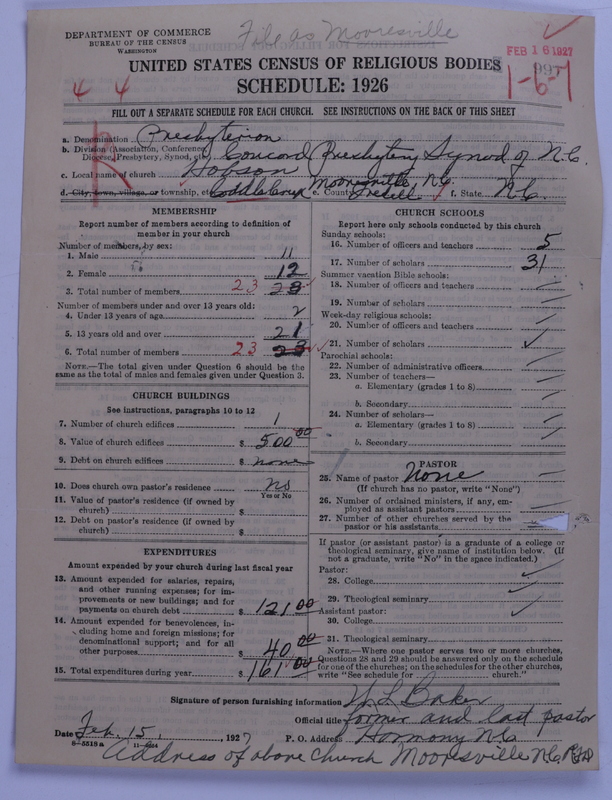 File as Mooresville
DEPARTMENT OF COMMERCE
BUREAU OF THE CENSUS
WASHINGTON
FEB 16 1927
997
1-6-7
UNITED STATES CENSUS OF RELIGIOUS BODIES
SCHEDULE: 1926
4 4
FILL OUT A SEPARATE SCHEDULE FOR EACH CHURCH. SEE INSTRUCTIONS ON THE BACK OF THIS SHEET
R
a. Denomination Presbyterian
b. Division (Association, Conference, Diocese, Presbytery, Synod, etc.) Concord Presbytery Synod of N.C.
c. Local name of church Hobson
Mooresville N.C.
d. City, town, village, or township, etc. Coddle Creek e. County Iredell f. State N.C.
MEMBERSHIP
Report number of members according to definition of
member in your church
Number of members, by sex:
1. Male 11
2. Female 12
3. Total number of members 23 23
Number of members under and over 13 years old:
4. Under 13 years of age 2
5. 13 years old and over 21
6. Total number of members 23 23
NOTE.—The total given under Question 6 should be the
same as the total of males and females given under Question 3.
CHURCH BUILDINGS
See instructions, paragraphs 10 to 12
7. Number of church edifices 1
8. Value of church edifices $ 500 00
9. Debt on church edifices $ none
10. Does church own pastor's residence no
Yes or No
11. Value of pastor's residence (if owned by
church) $
12. Debt on pastor's residence (if owned by
church) $
EXPENDITURES
Amount expended by your church during last fiscal year
13. Amount expended for salaries, repairs,
and other running expenses; for im-
provements or new buildings; and for
payments on church debt $ 121 00
14. Amount expended for benevolences, in-
cluding home and foreign missions; for
denominational support; and for all
other purposes $ 40 00
15. Total expenditures during year $ 161 00
CHURCH SCHOOLS
Report here only schools conducted by this church
Sunday schools:
16. Number of officers and teachers 5
17. Number of scholars 31
Summer vacation Bible schools:
18. Number of officers and teachers
19. Number of scholars
Week-day religious schools:
20. Number of officers and teachers
21. Number of scholars
Parochial schools:
22. Number of administrative officers
23. Number of teachers—
a. Elementary (grades 1 to 8)
b. Secondary
24. Number of scholars—
a. Elementary (grades 1 to 8)
b. Secondary
PASTOR
25. Name of pastor None
(If church has no pastor, write "None")
26. Number of ordained ministers, if any, em-
ployed as assistant pastors
27. Number of other churches served by the
pastor or his assistants
If pastor (or assistant pastor) is a graduate of a college or
theological seminary, give name of institution below. (If
not a graduate, write "No" in the space indicated.)
Pastor:
28. College
29. Theological seminary
Assistant pastor:
30. College
31. Theological seminary
NOTE.—Where one pastor serves two or more churches,
Questions 28 and 29 should be answered only on the schedule
for one of the churches; on the schedules for the other churches,
write "See schedule for church."
Signature of person furnishing information W L Baker
Official title former and last pastor
Date Feb. 15, 1927 P. O. Address Harmony N.C.
8-5518a
Address of above church Mooresville N.C.